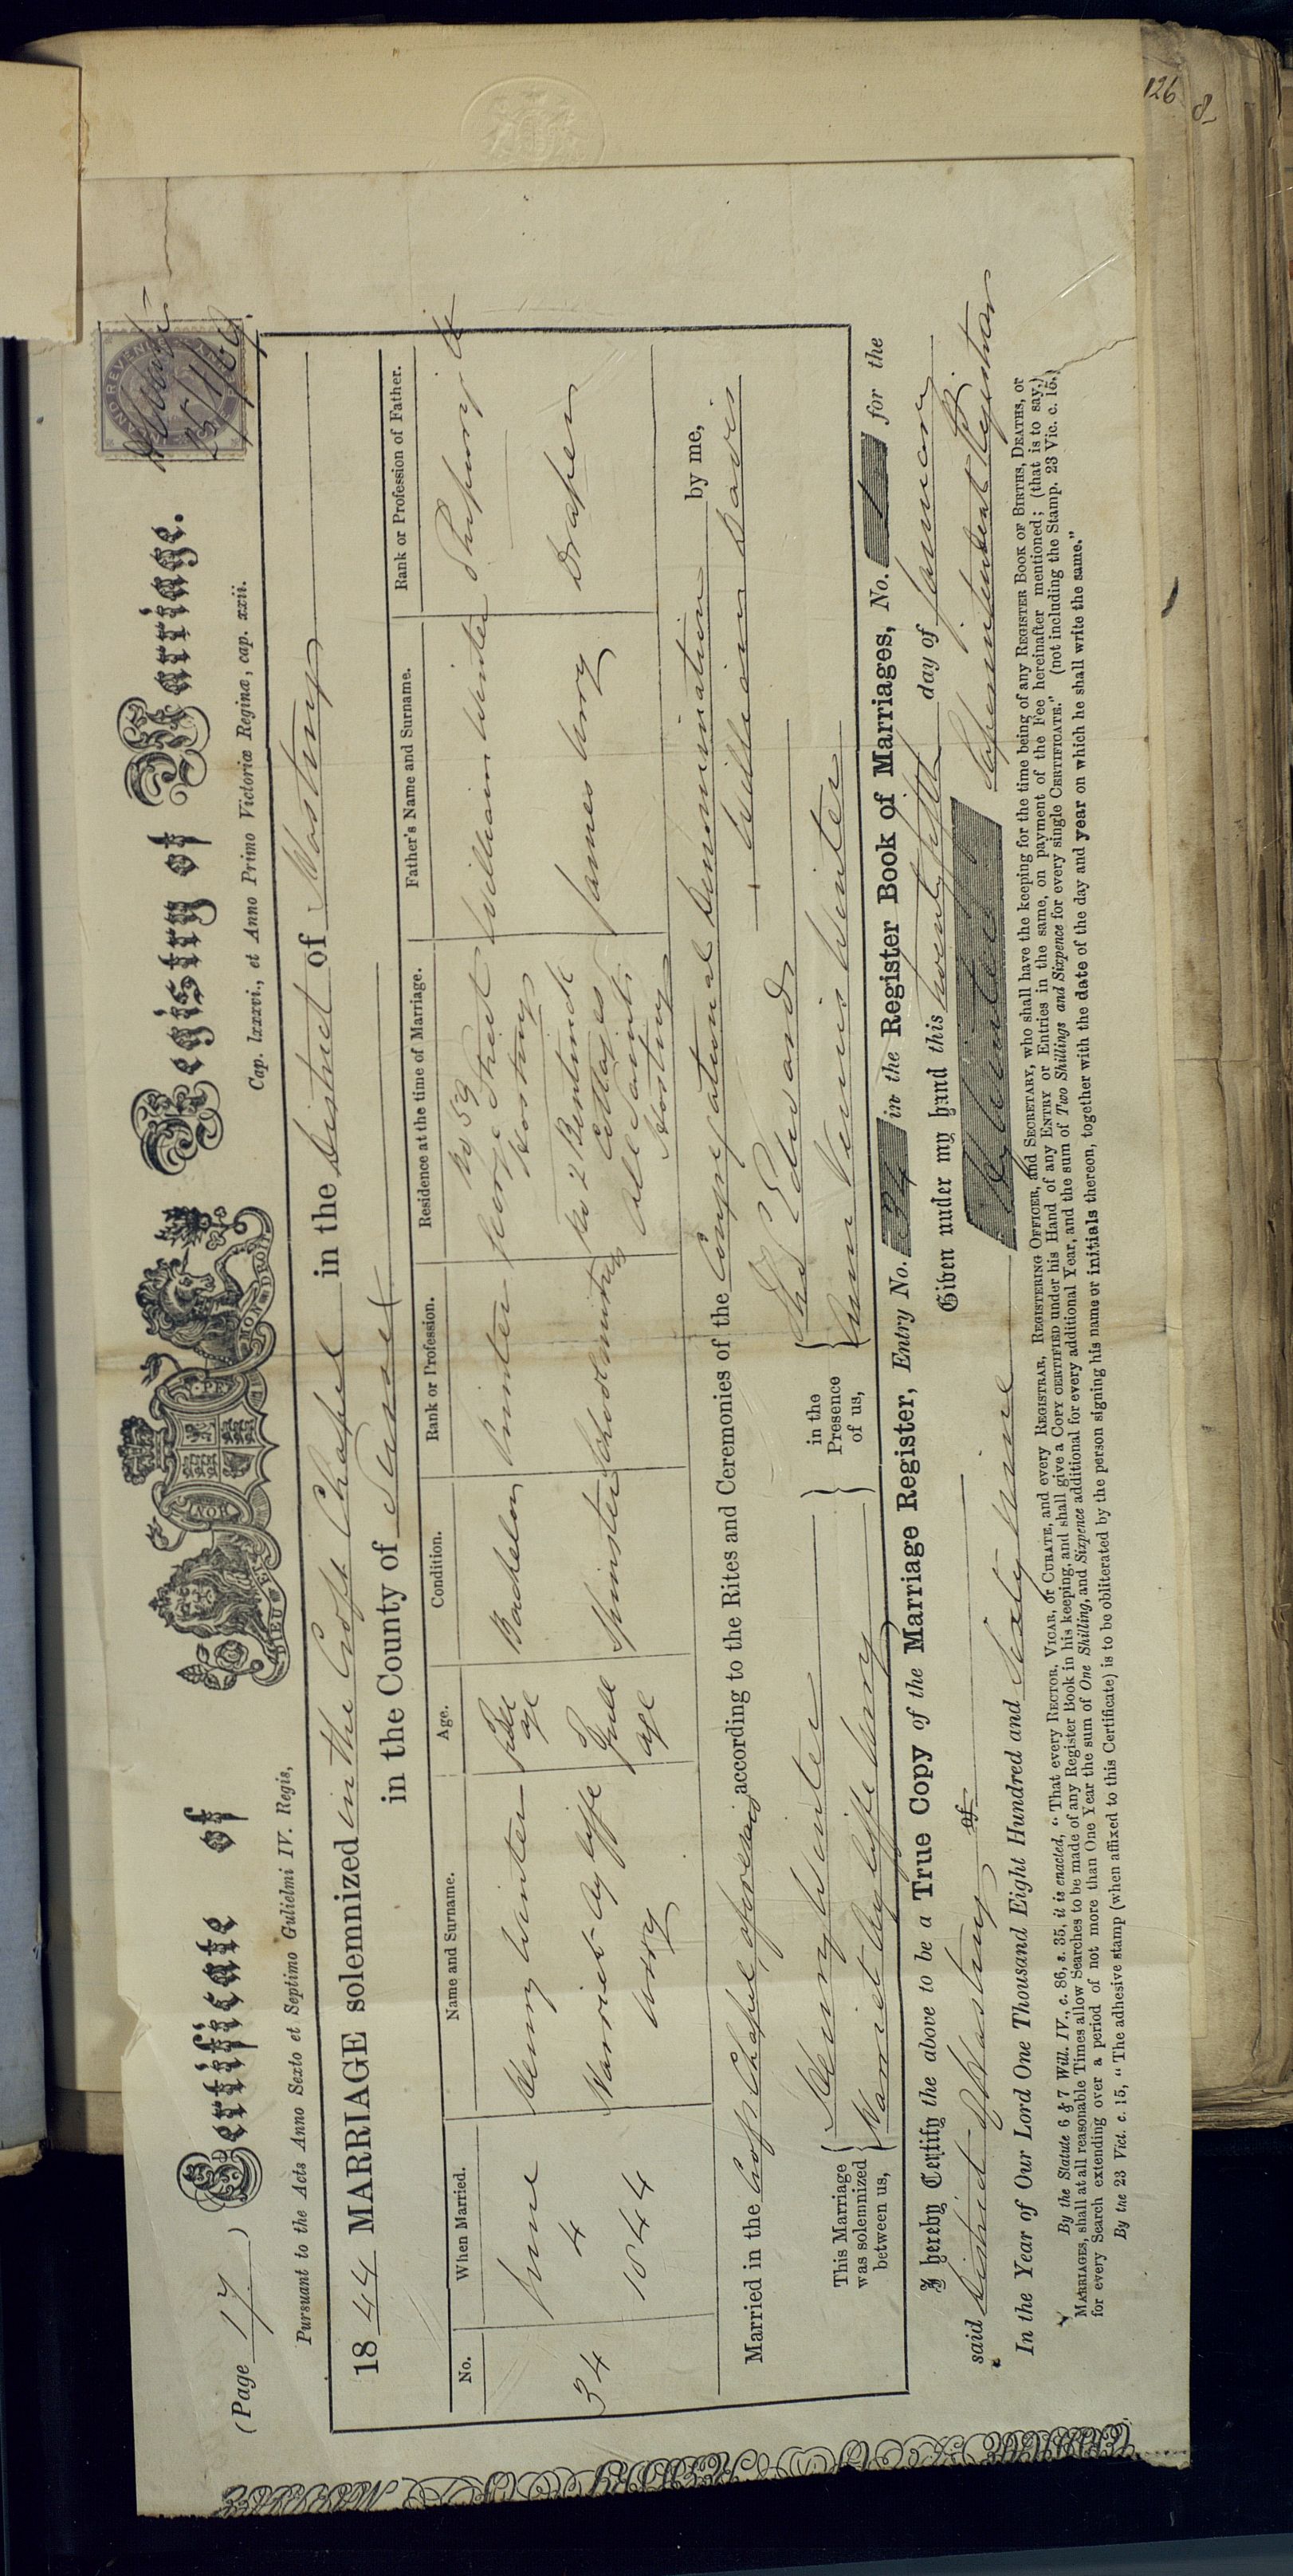 (Page 17) Certificate of Registry of Marriage.
Pursuant to the Acts Anno Sexto et Septimo Gulielmi IV. Regis, Cap. lxxxvi., et Anno Primo Victoriæ Reginæ, cap. xxii.
DIEU ET MON DROIT
INLAND REVENUE
25/1/69
1844 MARRIAGE solemnized in the Croft Chapel in the District of Hastings
in the County of Sussex
No. When Married. Name and Surname. Age. Condition. Rank or Profession. Residence at the time of Marriage. Father's Name and Surname. Rank or Profession of Father.
34 June 4 1844
Henry Winter Full age Bachelor Printer No 59 George Street Hastings William Winter
Harriet Ayliffe Urry Full age Spinster Schoolmistress No 2 Bentinck Cottages All Saints Hastings James Urry Draper
Married in the Croft Chapel aforesaid according to the Rites and Ceremonies of the Congregational Denomination by me,
William Davis
This Marriage was solemnized between us, { Henry Winter } in the Presence of us, { Thos Edwards
{ Harriet Ayliffe Urry } { Ann Winter
I hereby Certify the above to be a True Copy of the Marriage Register, Entry No. 34 in the Register Book of Marriages, No. 1 for the
said District of Hastings of Given under my hand this twenty fifth day of January
In the Year of Our Lord One Thousand Eight Hundred and Sixty nine Superintendent Registrar
By the Statute 6 & 7 Will. IV., c. 86, s. 35, it is enacted, "That every RECTOR, VICAR, or CURATE, and every REGISTRAR, REGISTERING OFFICER, and SECRETARY, who shall have the keeping for the time being of any REGISTER BOOK OF BIRTHS, DEATHS, or
MARRIAGES, shall at all reasonable Times allow Searches to be made of any Register Book in his keeping, and shall give a COPY CERTIFIED under his Hand of any ENTRY or Entries in the same, on payment of the Fee hereinafter mentioned; (that is to say,)
for every Search extending over a period of not more than One Year the sum of One Shilling, and Sixpence additional for every additional Year, and the sum of Two Shillings and Sixpence for every single CERTIFICATE." (not including the Stamp. 23 Vic. c. 15.)
By the 23 Vict. c. 15, "The adhesive stamp (when affixed to this Certificate) is to be obliterated by the person signing his name or initials thereon, together with the date of the day and year on which he shall write the same."
126
8